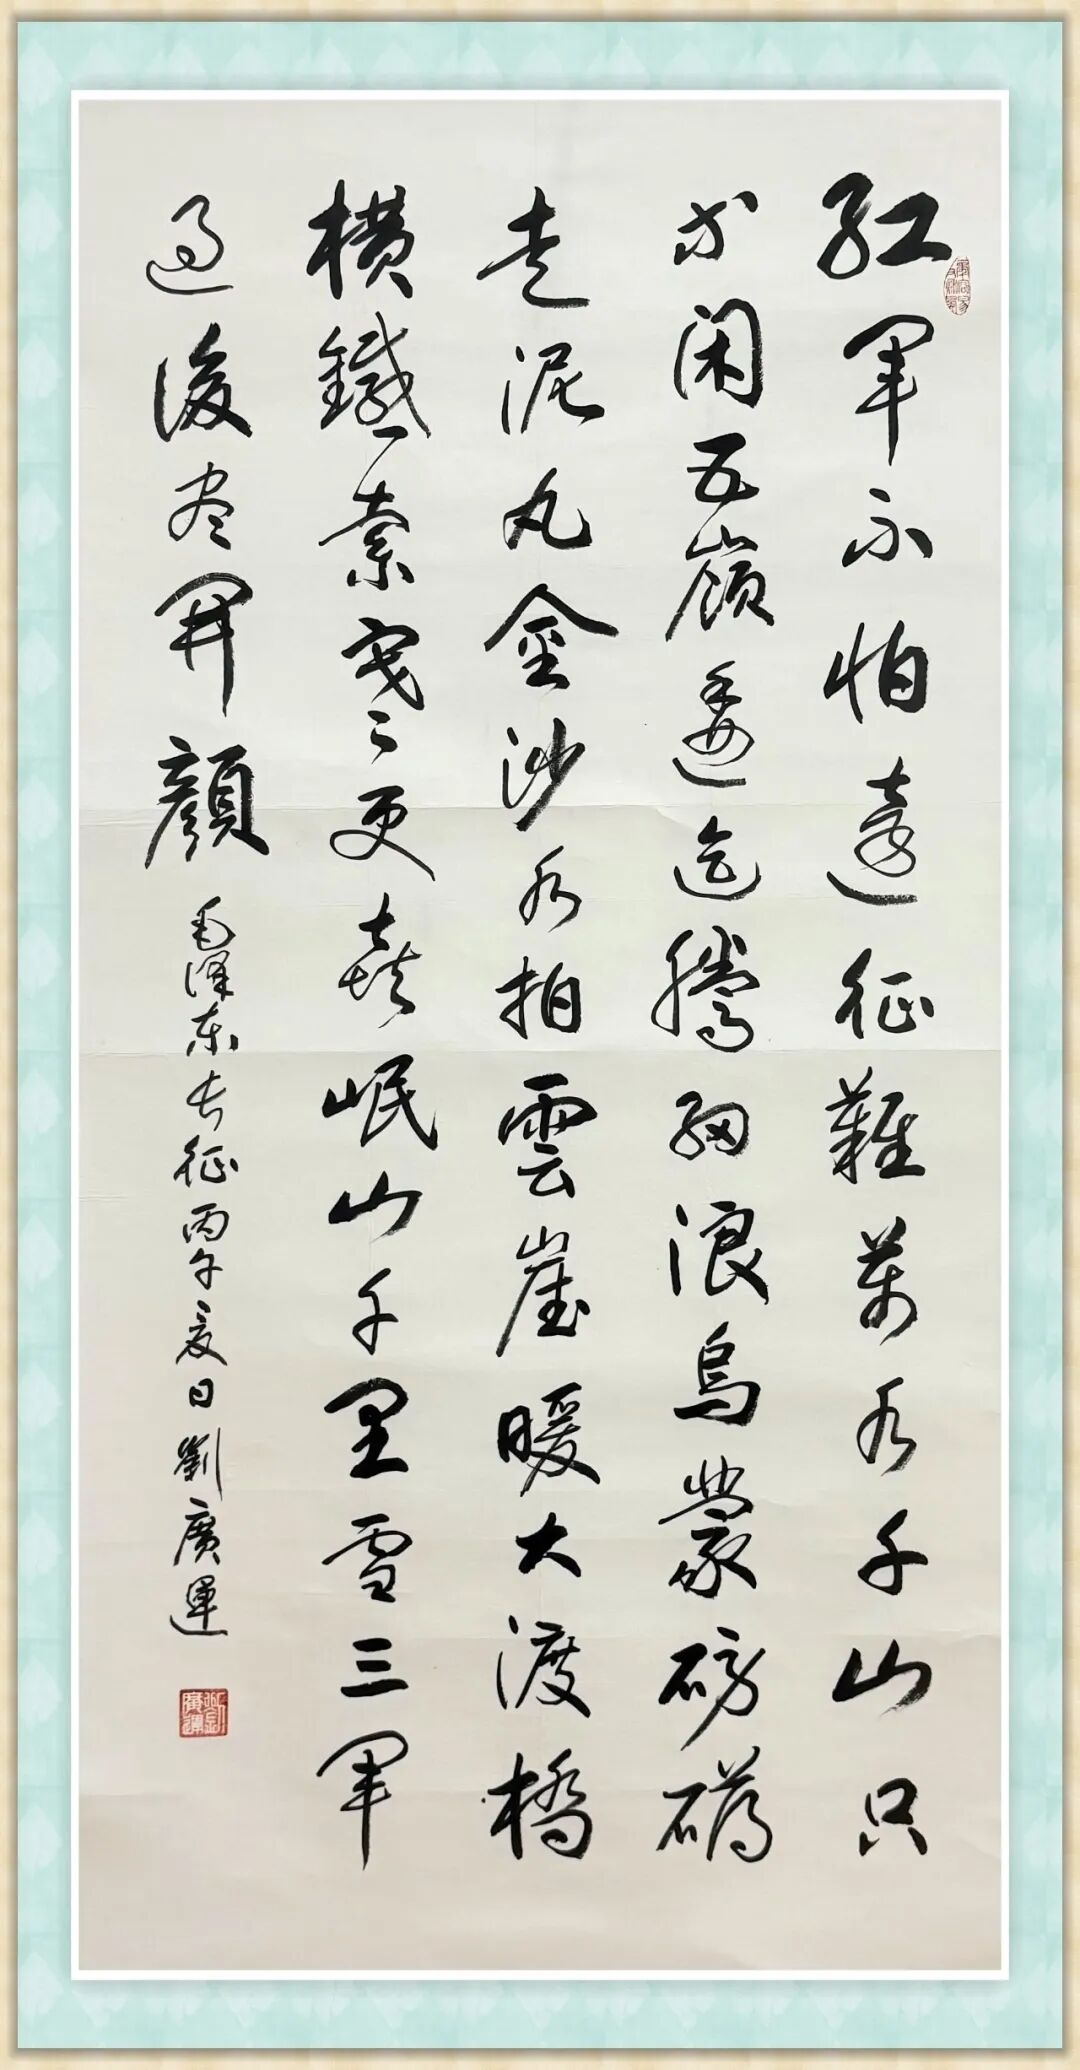 紅軍不怕遠征難萬水千山只
等閑五嶺逶迤騰細浪烏蒙磅礴
走泥丸金沙水拍雲崖暖大渡橋
橫鐵索寒更喜岷山千里雪三軍
過後尽開顏
毛泽东长征丙午夏日劉廣運
劉廣運